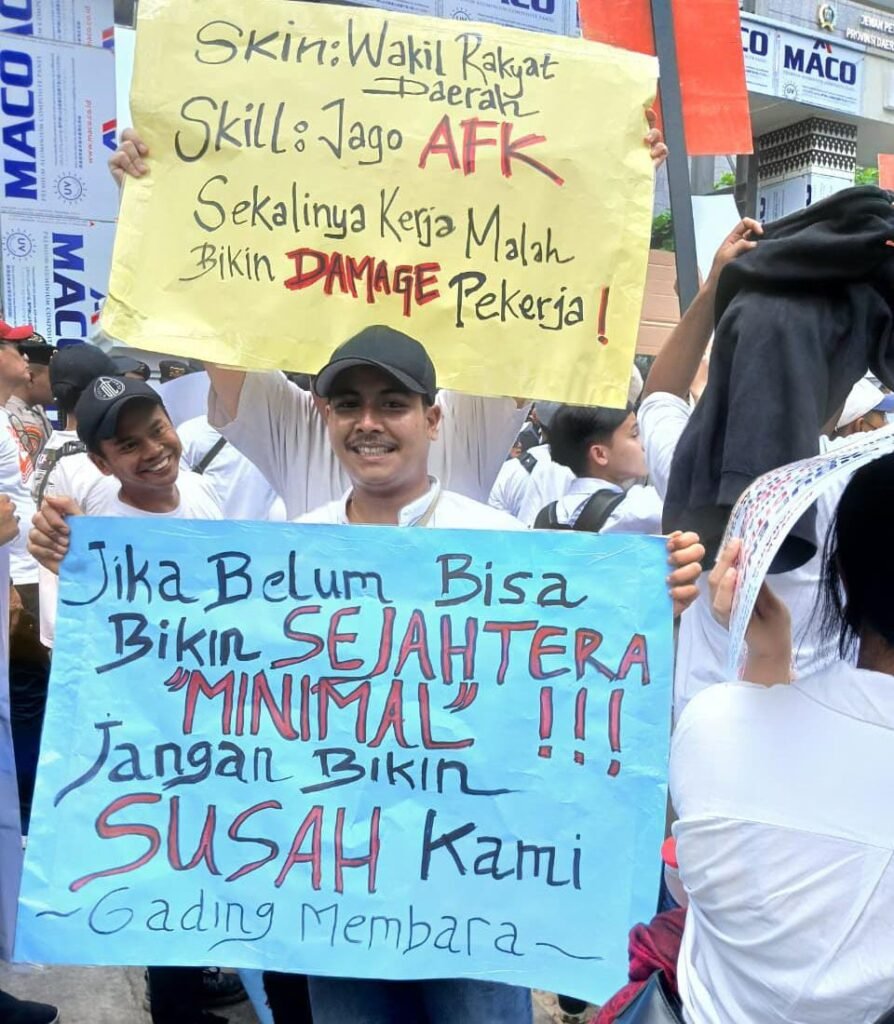 Skin: Wakil Rakyat
Daerah
Skill: Jago AFK
Sekalinya Kerja Malah
Bikin DAMAGE Pekerja!
Jika Belum Bisa
Bikin SEJAHTERA
"MINIMAL" !!!
Jangan Bikin
SUSAH Kami
~Gading Membara~
MACO
MACO
MACO
MACO
UV
UV
PROVINSI DAERAH